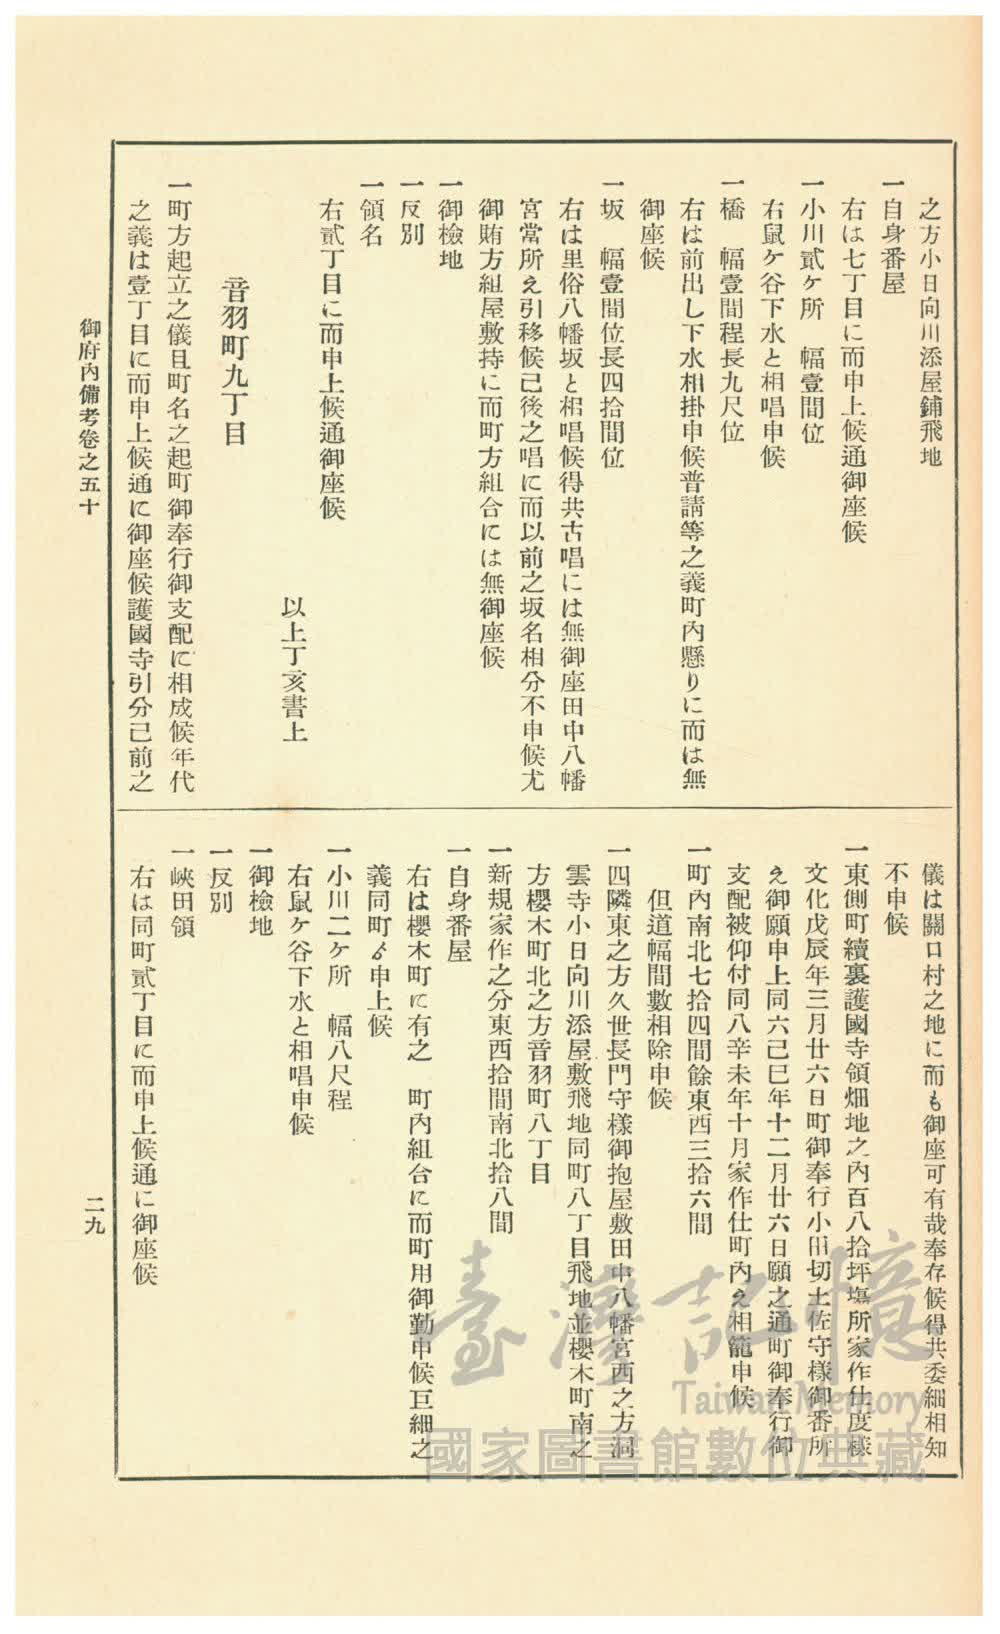 之方小日向川添屋鋪飛地
一自身番屋
右は七丁目に而申上候通御座候
一小川貳ケ所　幅壹間位
右鼠ケ谷下水と相唱申候
一橋　幅壹間程長九尺位
右は前出し下水相掛申候普請等之義町內懸りに而は無
御座候
一坂　幅壹間位長四拾間位
右は里俗八幡坂と相唱候得共古唱には無御座田中八幡
宮當所え引移候已後之唱に而以前之坂名相分不申候尤
御賄方組屋敷持に而町方組合には無御座候
一御檢地
一反別
一領名
右貳丁目に而申上候通御座候
以上丁亥書上
音羽町九丁目
一町方起立之儀且町名之起町御奉行御支配に相成候年代
之義は壹丁目に而申上候通に御座候護國寺引分己前之
儀は關口村之地に而も御座可有哉奉存候得共委細相知
不申候
一東側町續裏護國寺領畑地之內百八拾坪塲所家作仕度樣
文化戊辰年三月廿六日町御奉行小田切土佐守樣御番所
え御願申上同六己巳年十二月廿六日願之通町御奉行御
支配被仰付同八辛未年十月家作仕町內え相籠申候
一町內南北七拾四間餘東西三拾六間
但道幅間數相除申候
一四隣東之方久世長門守樣御抱屋敷田中八幡宮西之方洞
雲寺小日向川添屋敷飛地同町八丁目飛地並櫻木町南之
方櫻木町北之方音羽町八丁目
一新規家作之分東西拾間南北拾八間
一自身番屋
右は櫻木町に有之　町內組合に而町用御勤申候巨細之
義同町ゟ申上候
一小川二ケ所　幅八尺程
右鼠ケ谷下水と相唱申候
一御檢地
一反別
一峽田領
右は同町貳丁目に而申上候通に御座候
御府內備考卷之五十
二九
臺灣記憶
Taiwan Memory
國家圖書館數位典藏